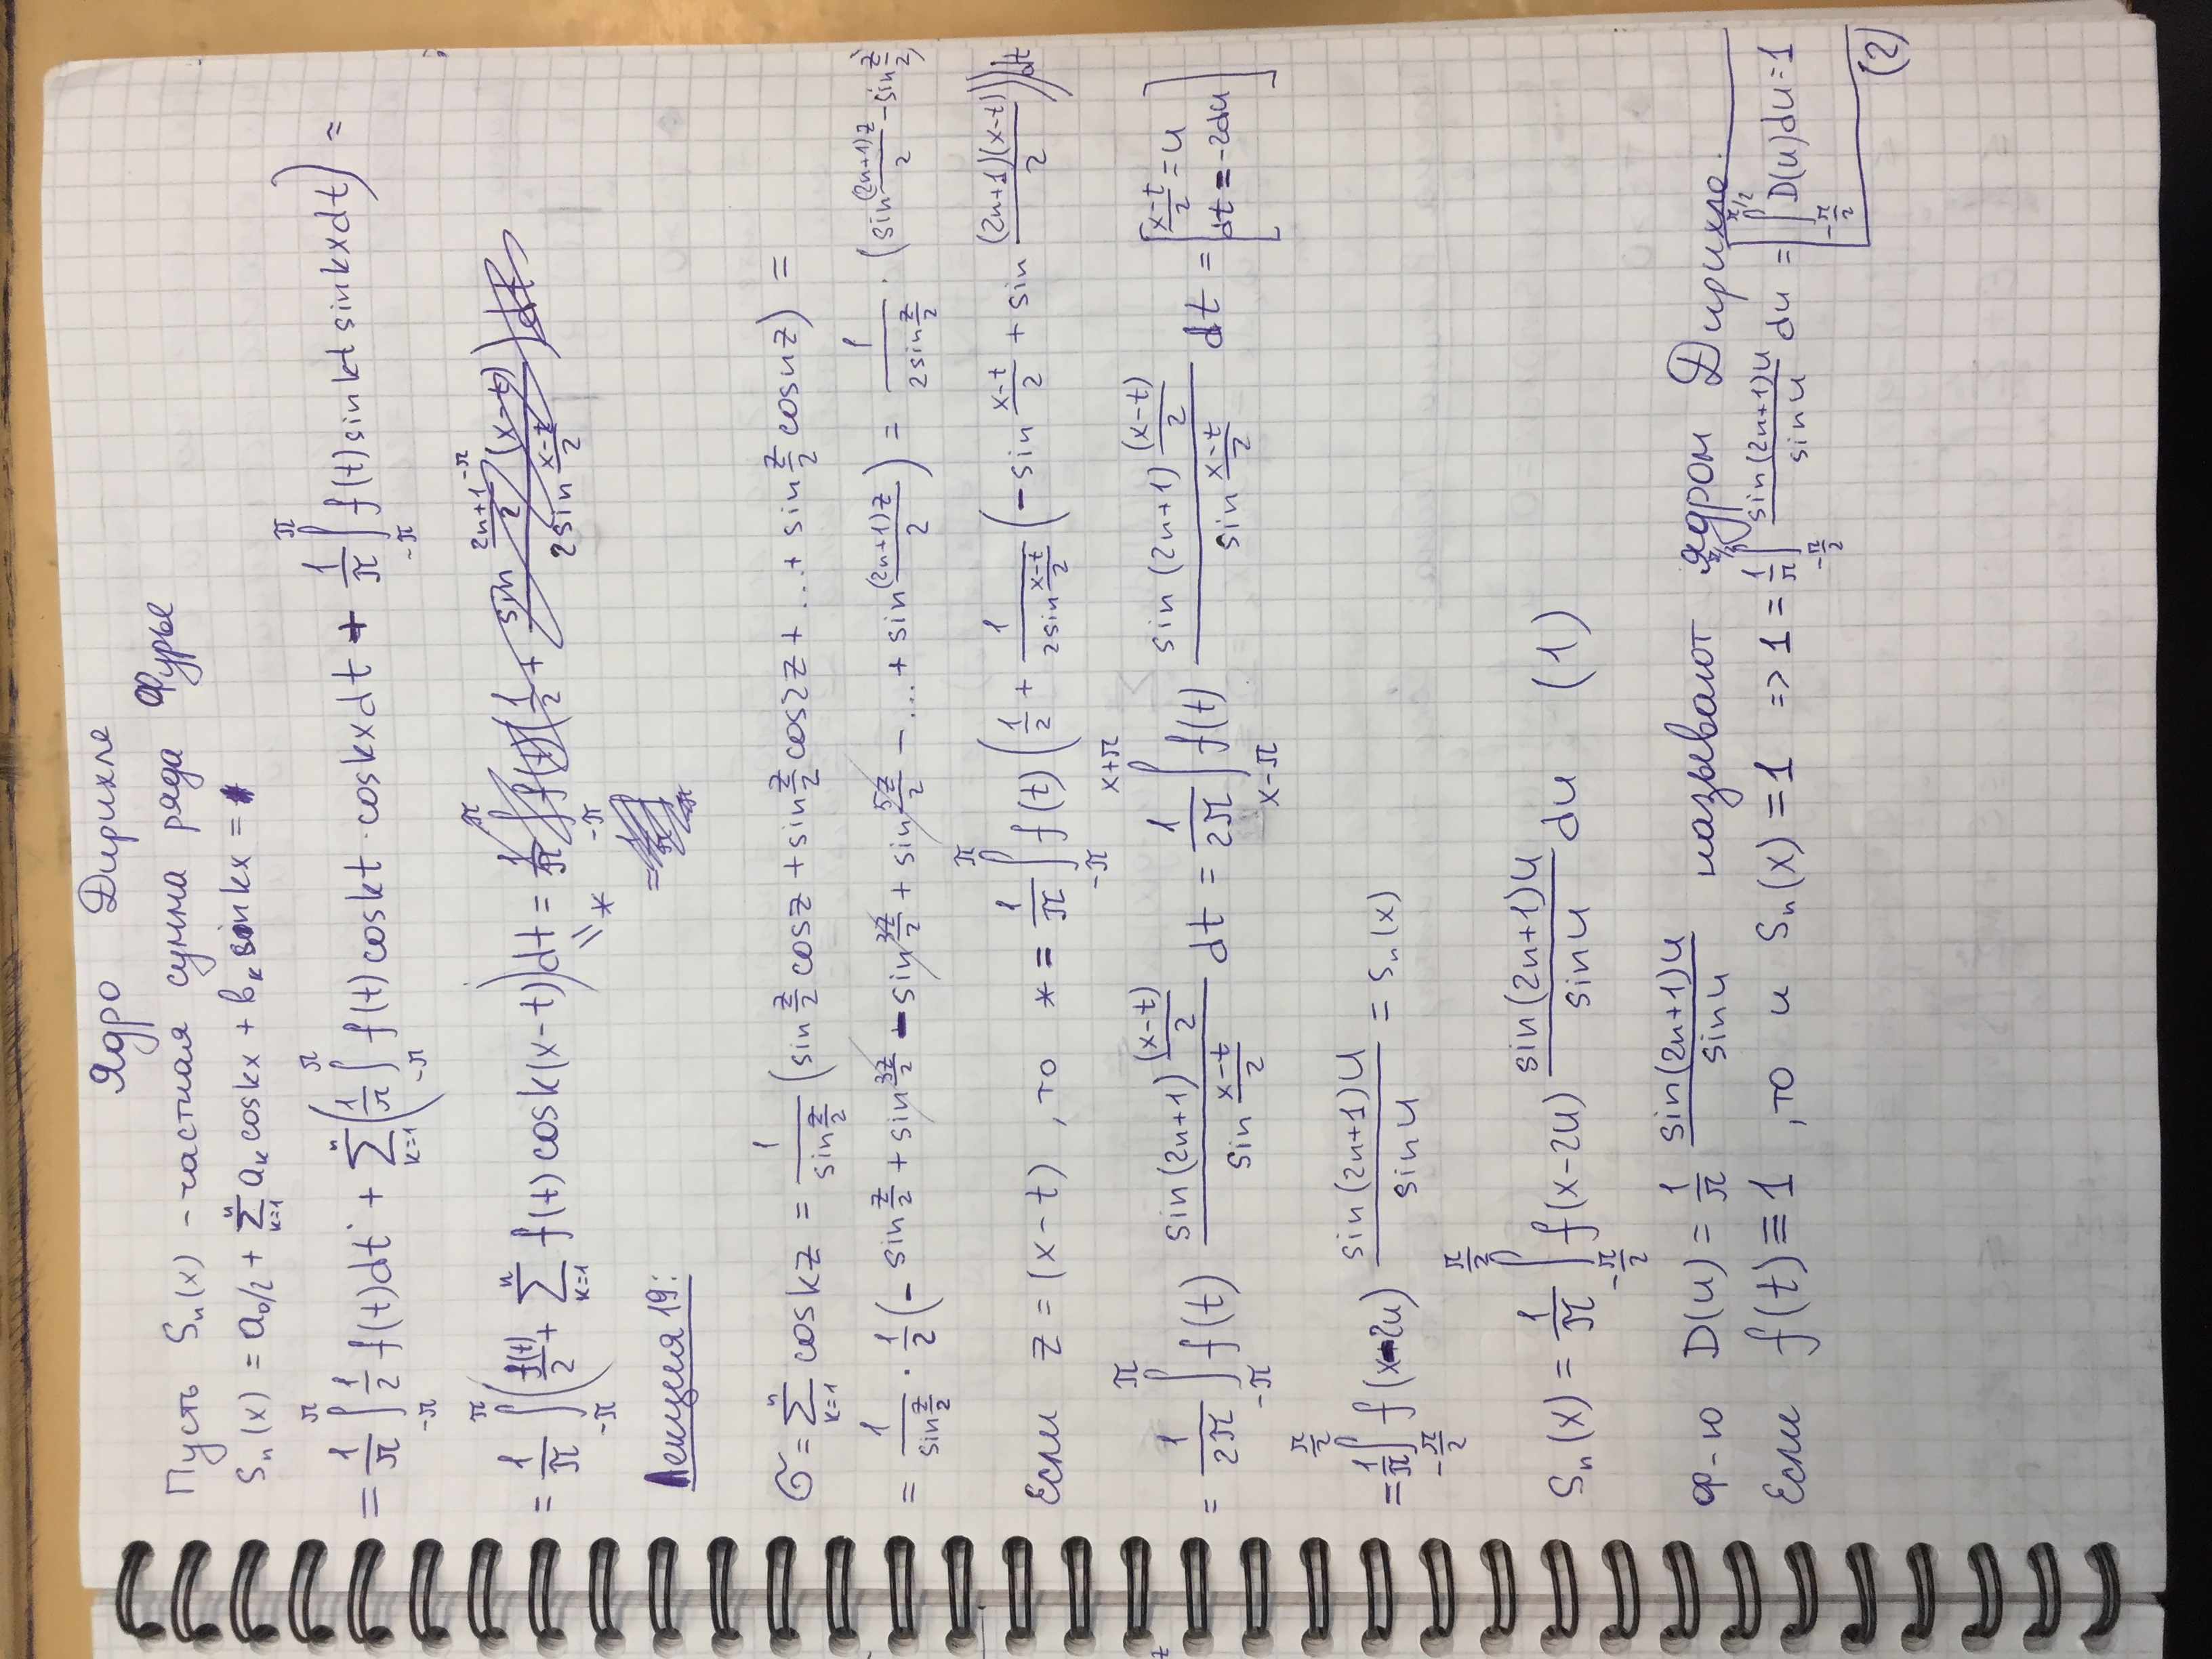 Ядро Дирихле
Пусть Sₙ(x) - частная сумма ряда Фурье
Sₙ(x) = a₀/2 + ∑_{k=1}^{n} aₖ cos kx + bₖ sin kx =
= 1/π ∫_{-π}^{π} 1/2 f(t)dt + ∑_{k=1}^{n} (1/π ∫_{-π}^{π} f(t) cos kt · cos kx dt + 1/π ∫_{-π}^{π} f(t) sin kt sin kx dt) =
= 1/π ∫_{-π}^{π} (f(t)/2 + ∑_{k=1}^{n} f(t) cos k(x-t)) dt = 1/π ∫_{-π}^{π} f(t) (1/2 + sin (2n+1)/2 (x-t) / 2 sin (x-t)/2) dt
\\ *
Лекция 19:
σ = ∑_{k=1}^{n} cos kz = 1/(sin z/2) (sin z/2 cos z + sin z/2 cos 2z + ... + sin z/2 cos nz) =
= 1/(sin z/2) · 1/2 (- sin z/2 + sin 3z/2 - sin 3z/2 + sin 5z/2 - ... + sin (2n+1)z/2) = 1/(2 sin z/2) · (sin (2n+1)z/2 - sin z/2)
Если z = (x-t) , то * = 1/π ∫_{-π}^{π} f(t) (1/2 + 1/(2 sin (x-t)/2) (- sin (x-t)/2 + sin (2n+1)(x-t)/2)) dt
= 1/2π ∫_{-π}^{π} f(t) sin(2n+1) (x-t)/2 / sin (x-t)/2 dt = 1/2π ∫_{x-π}^{x+π} f(t) sin (2n+1) (x-t)/2 / sin (x-t)/2 dt = [(x-t)/2 = u
dt = -2du]
= 1/π ∫_{-π/2}^{π/2} f(x-2u) sin(2n+1)u / sin u = Sₙ(x)
Sₙ(x) = 1/π ∫_{-π/2}^{π/2} f(x-2u) sin(2n+1)u / sin u du (1)
ф-ю D(u) = 1/π sin(2n+1)u / sin u называют ядром Дирихле.
Если f(t) ≡ 1 , то и Sₙ(x) = 1 => 1 = 1/π ∫_{-π/2}^{π/2} sin(2n+1)u / sin u du = ∫_{-π/2}^{π/2} D(u)du = 1
(2)